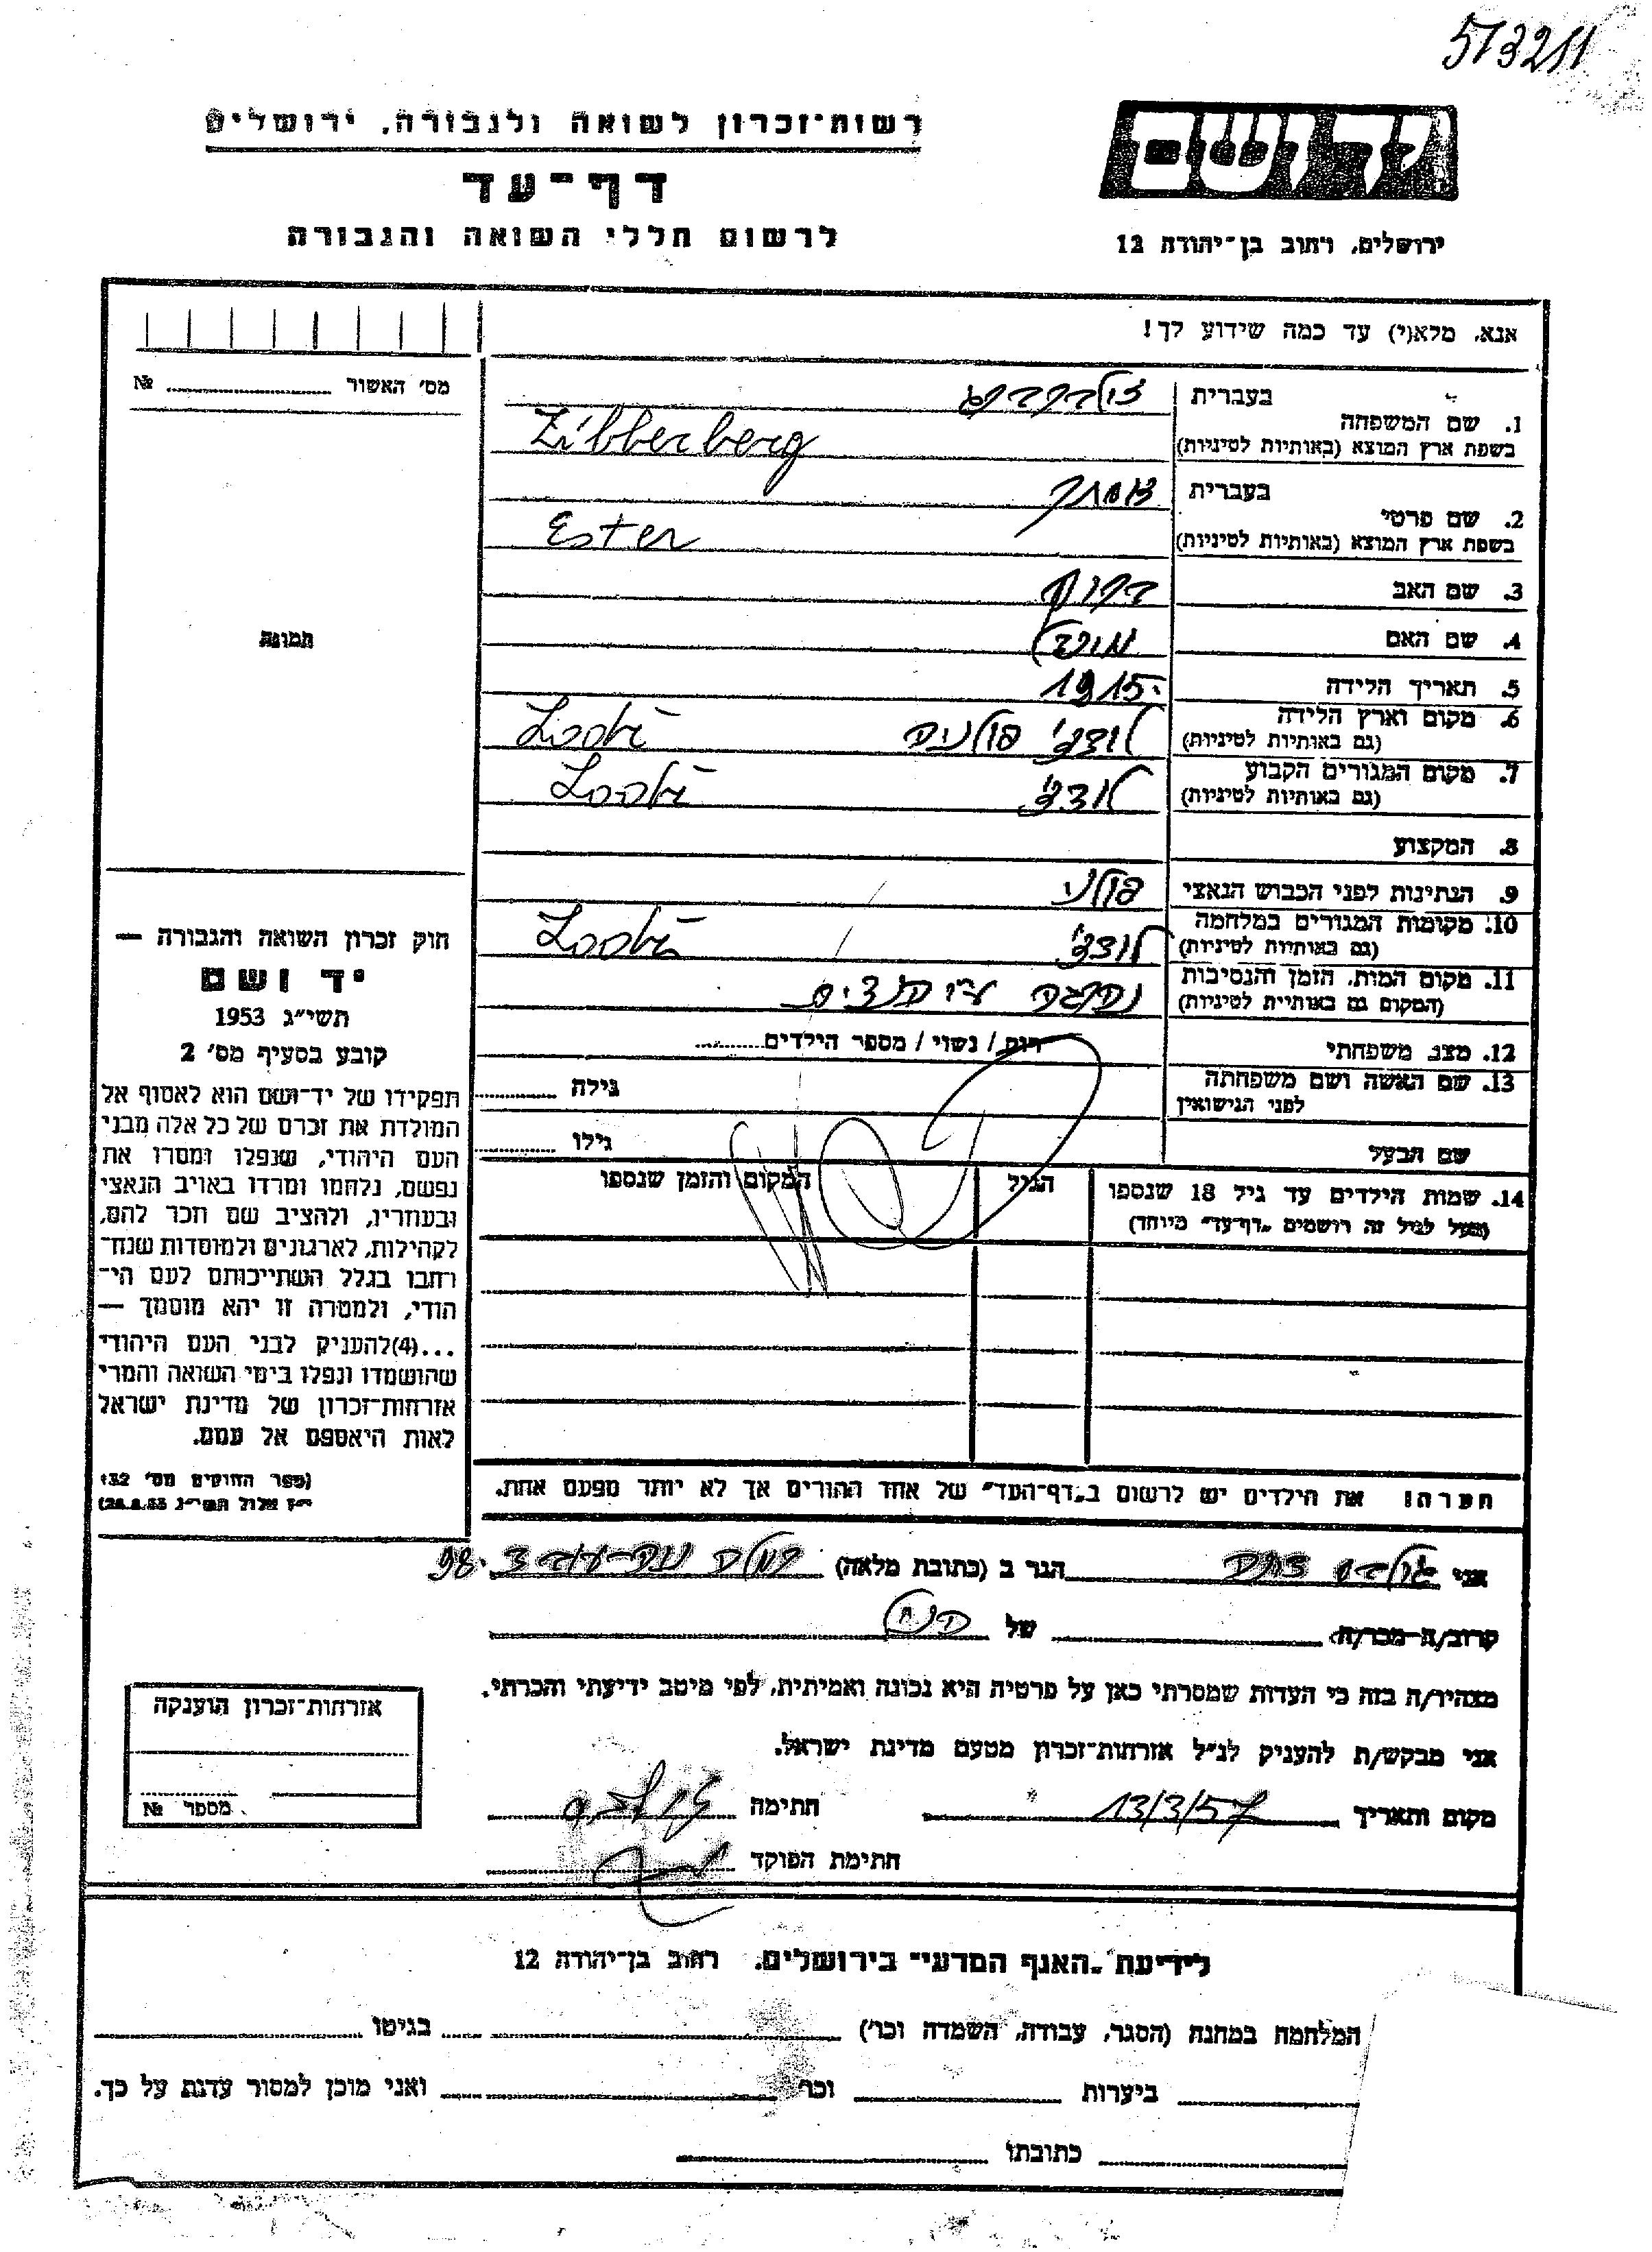 573211
רשות־זכרון לשואה ולגבורה, ירושלים
דף־עד
לרשום חללי השואה והגבורה
יד ושם
ירושלים, רחוב בן־יהודה 12
אנא, מלא(י) עד כמה שידוע לך!
מס׳ האשור № 
בעברית זילברברג
1. שם המשפחה
בשפת ארץ המוצא (באותיות לטיניות) Zilberberg
בעברית אסתר
2. שם פרטי
בשפת ארץ המוצא (באותיות לטיניות) Ester
3. שם האב
4. שם האם
5. תאריך הלידה 1915
6. מקום וארץ הלידה לודג׳ פולניה Lodź
(גם באותיות לטיניות)
7. מקום המגורים הקבוע לודג׳ Lodź
(גם באותיות לטיניות)
8. המקצוע
9. הנתינות לפני הכבוש הנאצי פולני
10. מקומות המגורים במלחמה לודג׳ Lodź
(גם באותיות לטיניות)
11. מקום המות, הזמן והנסיבות נהרגה ע״י הנאצים
(המקום גם באותיות לטיניות)
12. מצב משפחתי רווק / נשוי / מספר הילדים
13. שם האשה ושם משפחתה גילה
לפני הנישואין
שם הבעל גילו
14. שמות הילדים עד גיל 18 שנספו הגיל המקום והזמן שנספו
(מעל לגיל זה רושמים "דף־עד" מיוחד)
תמונה
חוק זכרון השואה והגבורה —
יד ושם
תשי״ג 1953
קובע בסעיף מס׳ 2
תפקידו של יד־ושם הוא לאסוף אל
המולדת את זכרם של כל אלה מבני
העם היהודי, שנפלו ומסרו את
נפשם, נלחמו ומרדו באויב הנאצי
ובעוזריו, ולהציב שם וזכר להם,
לקהילות, לארגונים ולמוסדות שנח־
רחבו בגלל השתייכותם לעם הי־
הודי, ולמטרה זו יהא מוסמך —
...(4) להעניק לבני העם היהודי
שהושמדו ונפלו בימי השואה והמרי
אזרחות־זכרון של מדינת ישראל
לאות היאספם אל עמם.
(ספר החוקים מס׳ 132
י״ז אלול תשי״ג 28.8.53)
הערה! את הילדים יש לרשום ב"דף־העד" של אחד ההורים אך לא יותר מפעם אחת.
אני הגר ב (כתובת מלאה)
קרוב/ה־מכר/ה של
מצהיר/ה בזה כי העדות שמסרתי כאן על פרטיה היא נכונה ואמיתית, לפי מיטב ידיעתי והכרתי.
אני מבקש/ת להעניק לנ״ל אזרחות־זכרון מטעם מדינת ישראל.
מקום ותאריך 13/3/57 חתימה
חתימת הפוקד
אזרחות־זכרון הוענקה
מספר №
לידיעת "האגף המדעי" בירושלים, רחוב בן־יהודה 12
המלחמה במחנה (הסגר, עבודה, השמדה וכו׳) בגיטו
ביערות וכו׳ ואני מוכן למסור עדות על כך.
כתובתו